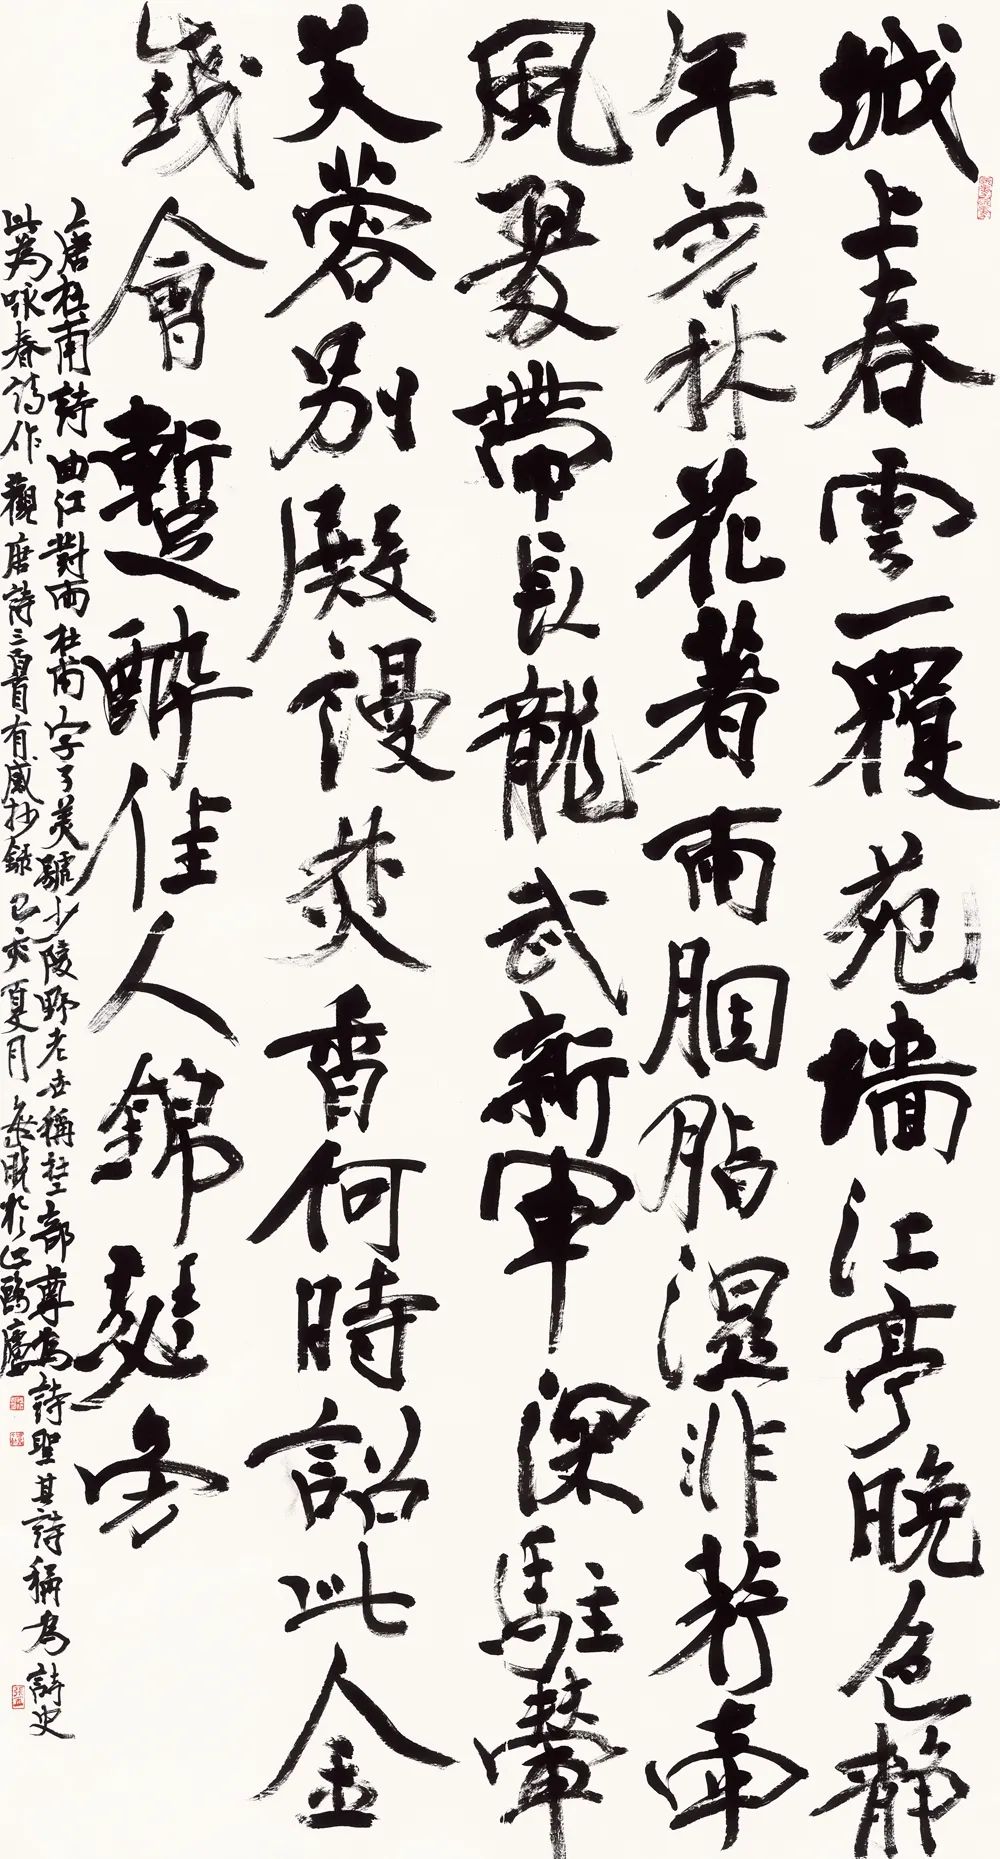 城上春雲覆苑墙江亭晚色静
年芳林花著雨胭脂濕水荇牽
風翠帶長龍武新軍深駐輦
芙蓉别殿謾焚香何時詔此金
錢會暫醉佳人錦瑟旁
唐杜甫詩曲江對雨杜甫字子美號少陵野老世稱杜工部尊為詩聖其詩稱為詩史
此為咏春詩作觀唐詩三百首有感抄録己亥夏月於鷗廬